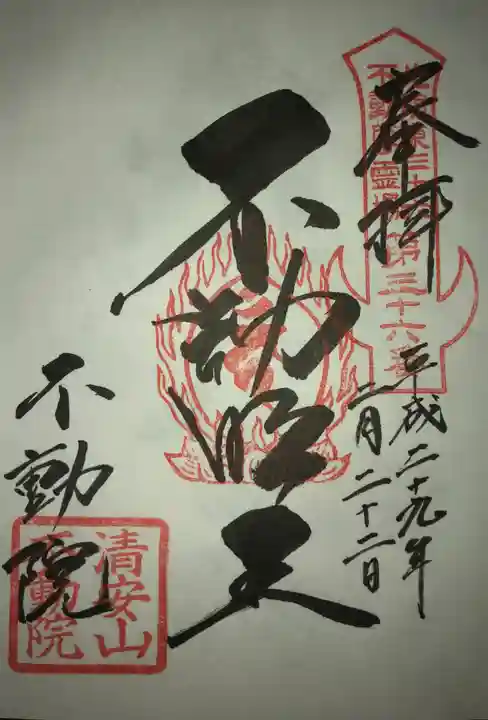 奉拝
不動明王
平成二十九年
二月二十二日
不動院
不動霊場第三十六番
清安山
不動院